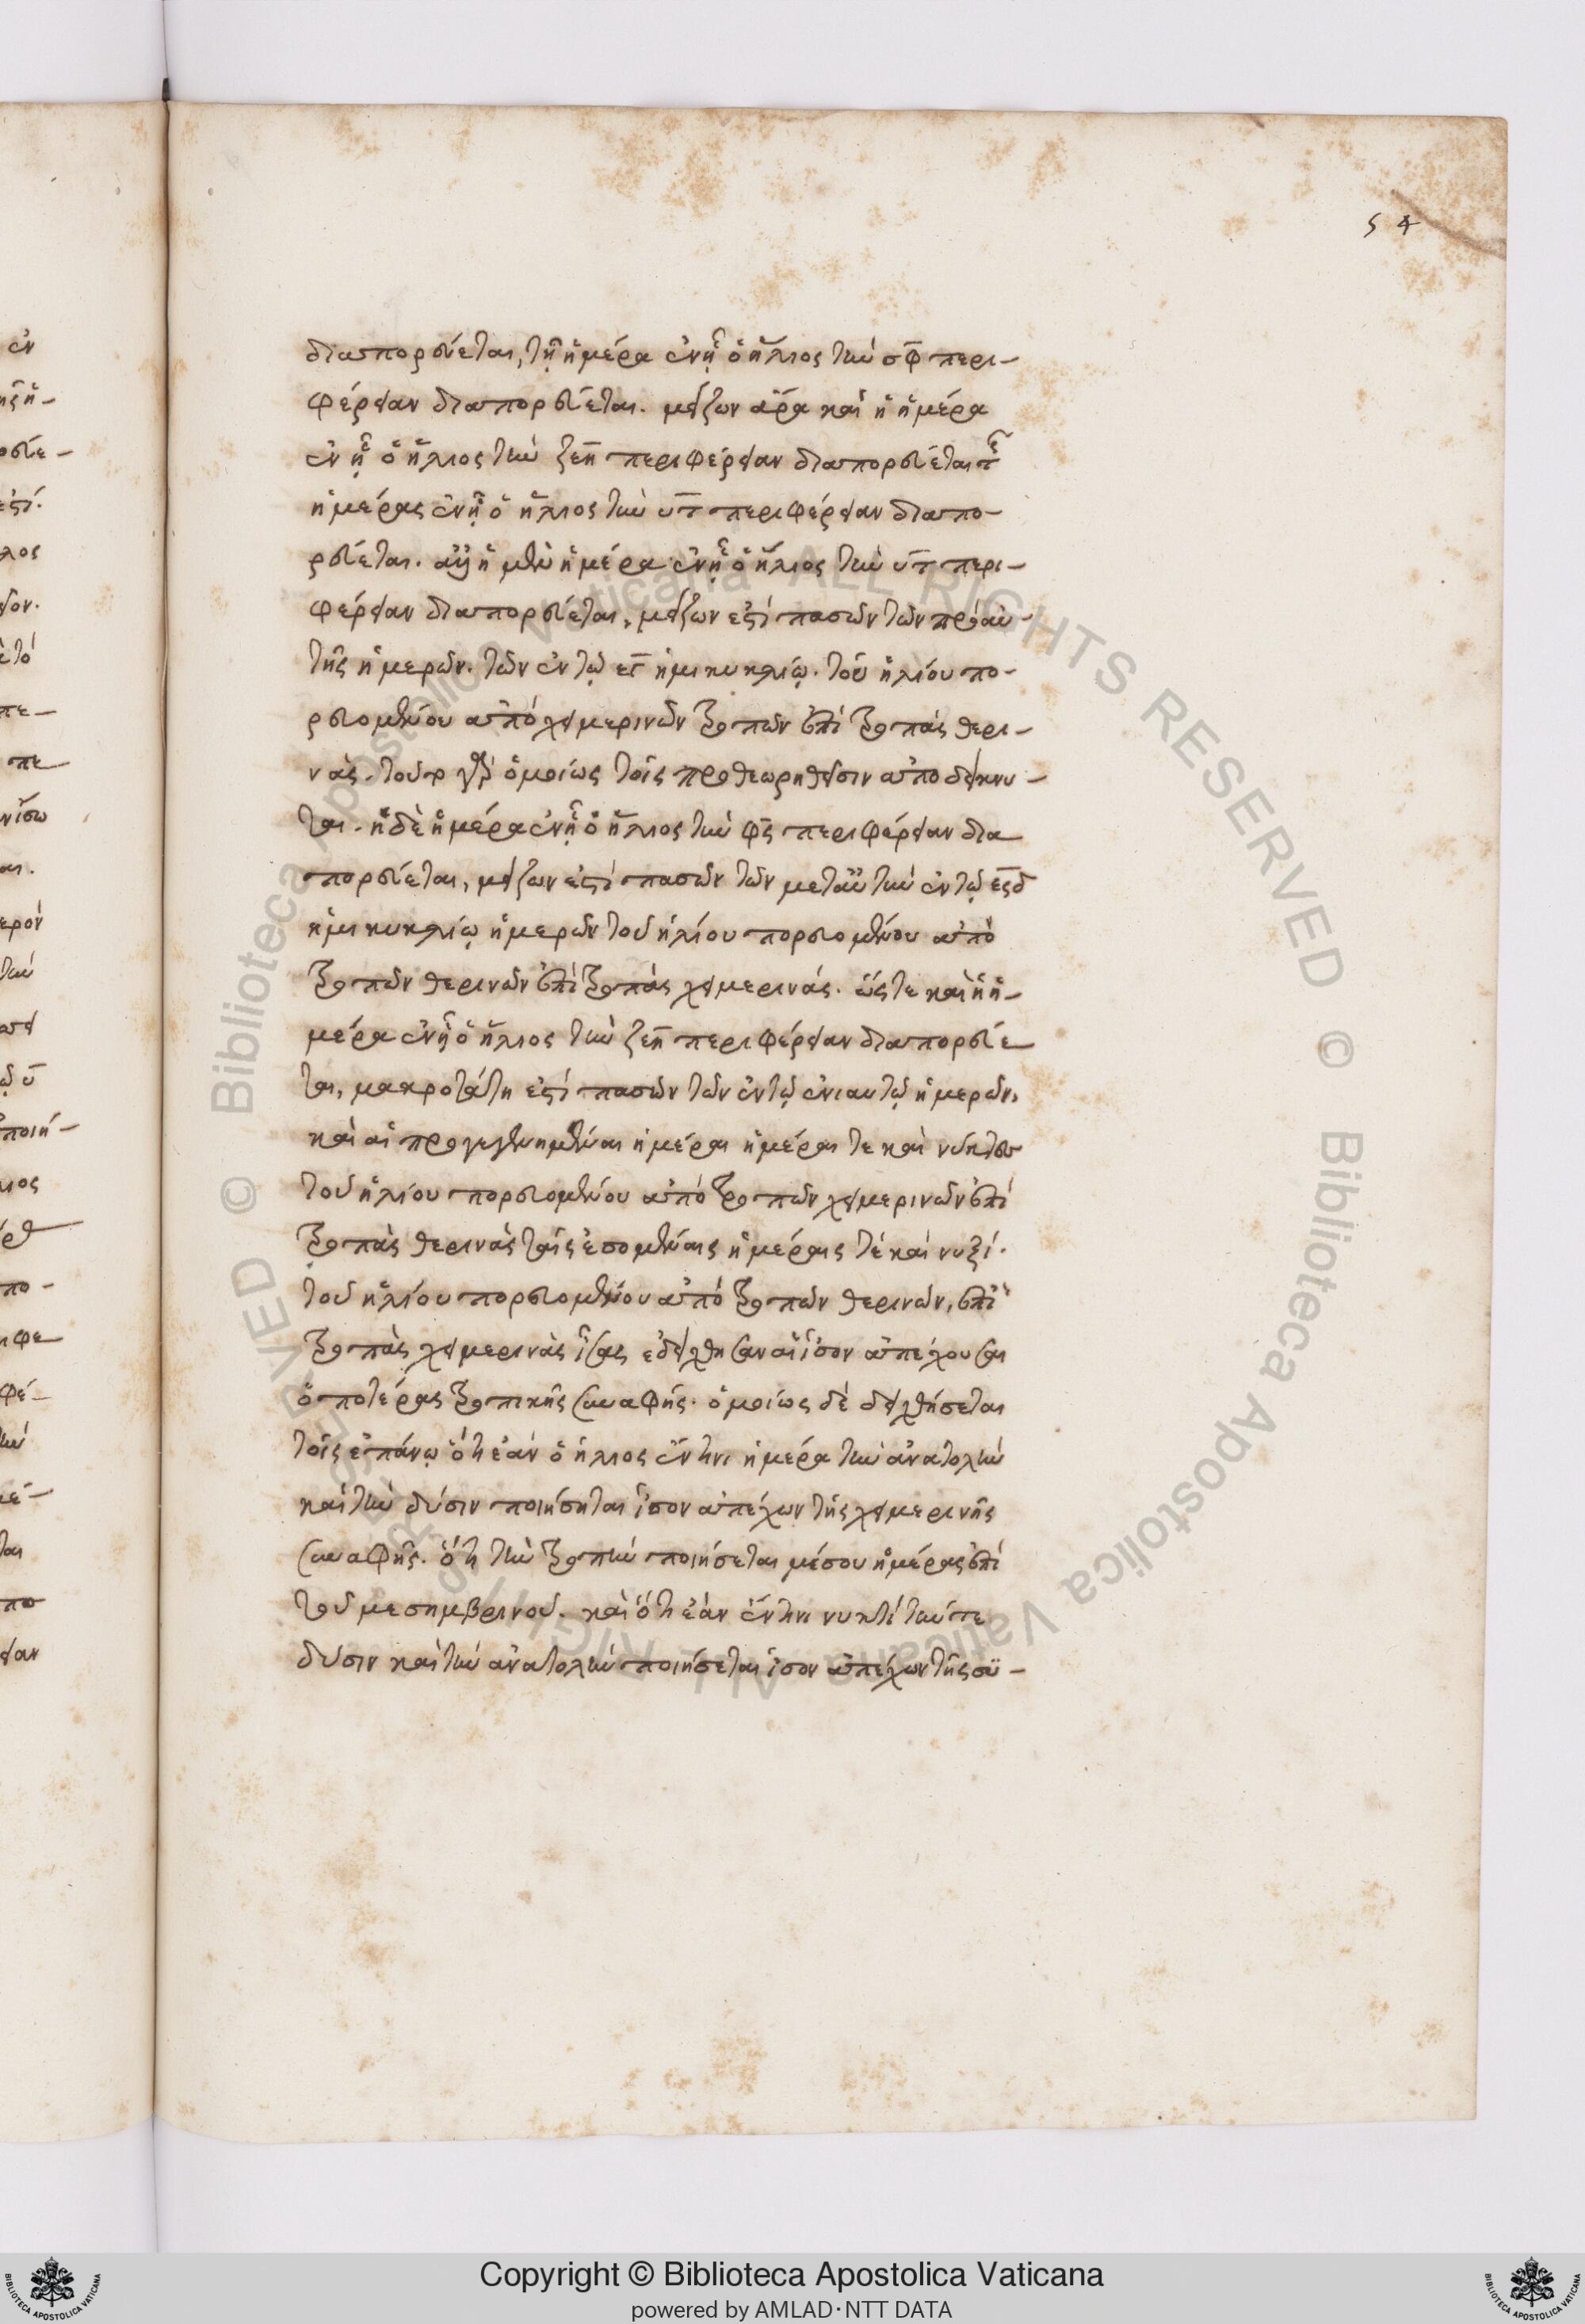 54
διαπορεύεται, τῇ ἡμέρα ἐν ᾗ ὁ ἥλιος τὴν σφ περι-
φέρειαν διαπορεύεται. μείζων ἄρα καὶ ἡ ἡμέρα
ἐν ᾗ ὁ ἥλιος τὴν ζεη περιφέρειαν διαπορεύεται τῆς
ἡμέρας ἐν ᾗ ὁ ἥλιος τὴν υτ περιφέρειαν διαπο-
ρεύεται. ἀλλ' ἡ μὲν ἡμέρα ἐν ᾗ ὁ ἥλιος τὴν υτ περι-
φέρειαν διαπορεύεται, μείζων ἐστὶ πασῶν τῶν πρὸ αὐ-
τῆς ἡμερῶν. τῶν ἐν τῷ εγ ἡμικυκλίῳ. τοῦ ἡλίου πο-
ρευομένου ἀπὸ χειμερινῶν τροπῶν ἐπὶ τροπὰς θερι-
νὰς. τοῦτο γὰρ ὁμοίως τοῖς προθεωρηθεῖσιν ἀποδείκνυ-
ται. ἡ δὲ ἡμέρα ἐν ᾗ ὁ ἥλιος τὴν φς περιφέρειαν δια
πορεύεται, μείζων ἐστὶ πασῶν τῶν μετ' αὐτὴν ἐν τῷ
ἡμικυκλίῳ ἡμερῶν τοῦ ἡλίου πορευομένου ἀπὸ
τροπῶν θερινῶν ἐπὶ τροπὰς χειμερινάς. ὥστε καὶ ἡ ἡ-
μέρα ἐν ᾗ ὁ ἥλιος τὴν ζεη περιφέρειαν διαπορεύε
ται, μακροτάτη ἐστὶ πασῶν τῶν ἐν τῷ ἐνιαυτῷ ἡμερῶν,
καὶ αἱ προγεγενημέναι ἡμέραι ἡμέραι τε καὶ νύκτες
τοῦ ἡλίου πορευομένου ἀπὸ τροπῶν χειμερινῶν ἐπὶ
τροπὰς θερινὰς ταῖς ἐσομέναις ἡμέραις τὲ καὶ νυξί.
τοῦ ἡλίου πορευομένου ἀπὸ τροπῶν θερινῶν, ἐπὶ
τροπὰς χειμερινὰς ἴσας ἐδείχθησαν αἱ ἴσον ἀπέχουσαι
ὁποτέρας τροπικῆς συναφῆς. ὁμοίως δὲ δειχθήσεται
τοῖς ἐπάνω ὅτι ἐὰν ὁ ἥλιος ἔν τινι ἡμέρα τὴν ἀνατολὴν
καὶ τὴν δύσιν ποιήσηται ἴσον ἀπέχων τῆς χειμερινῆς
συναφῆς. ὅτι τὴν τροπὴν ποιήσεται μέσου ἡμέρας ἐπὶ
τοῦ μεσημβρινοῦ. καὶ ὅτι ἐὰν ἔν τινι νυκτὶ τήν τε
δύσιν καὶ τὴν ἀνατολὴν ποιήσεται ἴσον ἀπέχων τῆς συ-
© Biblioteca Apostolica Vaticana ALL RIGHTS RESERVED
Copyright © Biblioteca Apostolica Vaticana
powered by AMLAD·NTT DATA
BIBLIOTECA APOSTOLICA VATICANA
BIBLIOTECA APOSTOLICA VATICANA